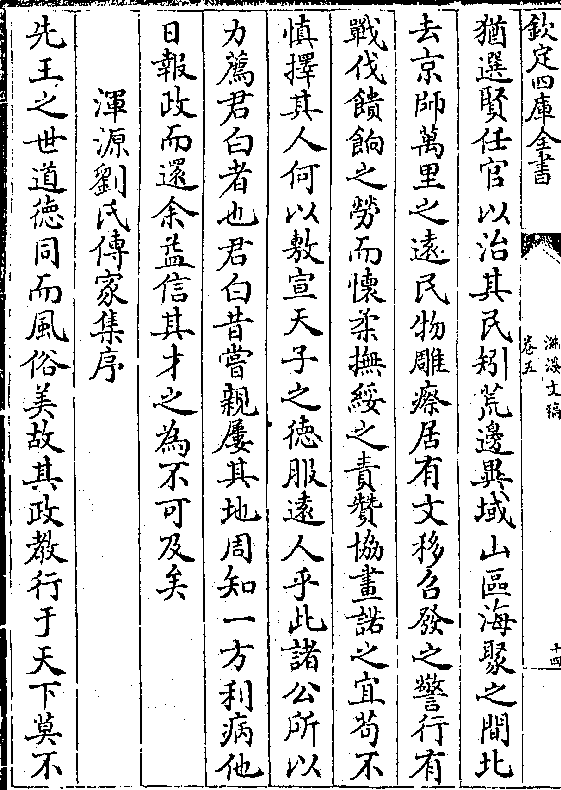 欽定四庫全書
滋溪文稿
卷五
十四
猶選賢任官以治其民矧荒邊異域山區海聚之間北
去京師萬里之遠民物雕瘵居有文移召發之警行有
戰伐饋餉之勞而懷柔撫綏之責贊協畫諾之宜苟不
慎擇其人何以敷宣天子之徳服逺人乎此諸公所以
力薦君白者也君白昔嘗親屢其地周知一方利病他
日報政而還余益信其才之為不可及矣
渾源劉氏傳家集序
先王之世道徳同而風俗美故其政教行于天下莫不